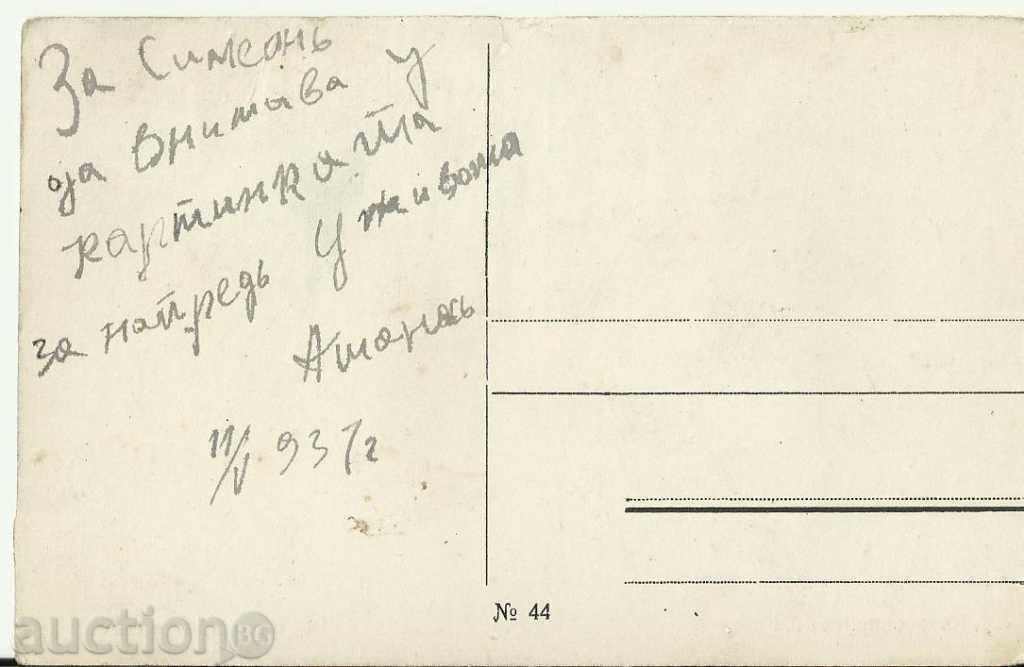 За Симеонъ
да внимава у
картинката
за напредь у живота
Атанасъ
11/V 937г
№ 44
auction BG